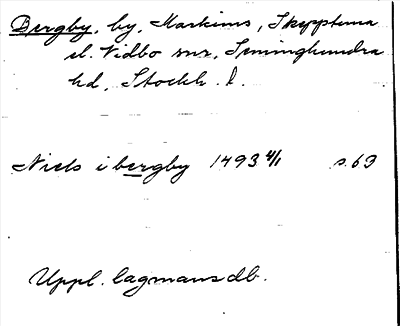 Bergby, by, Markims, Skepptuna
el. Vidbo snr, Seminghundra
hd, Stockh. l.
Niels i bergby 1493 4/1 s. 63
Uppl. lagmansdb.